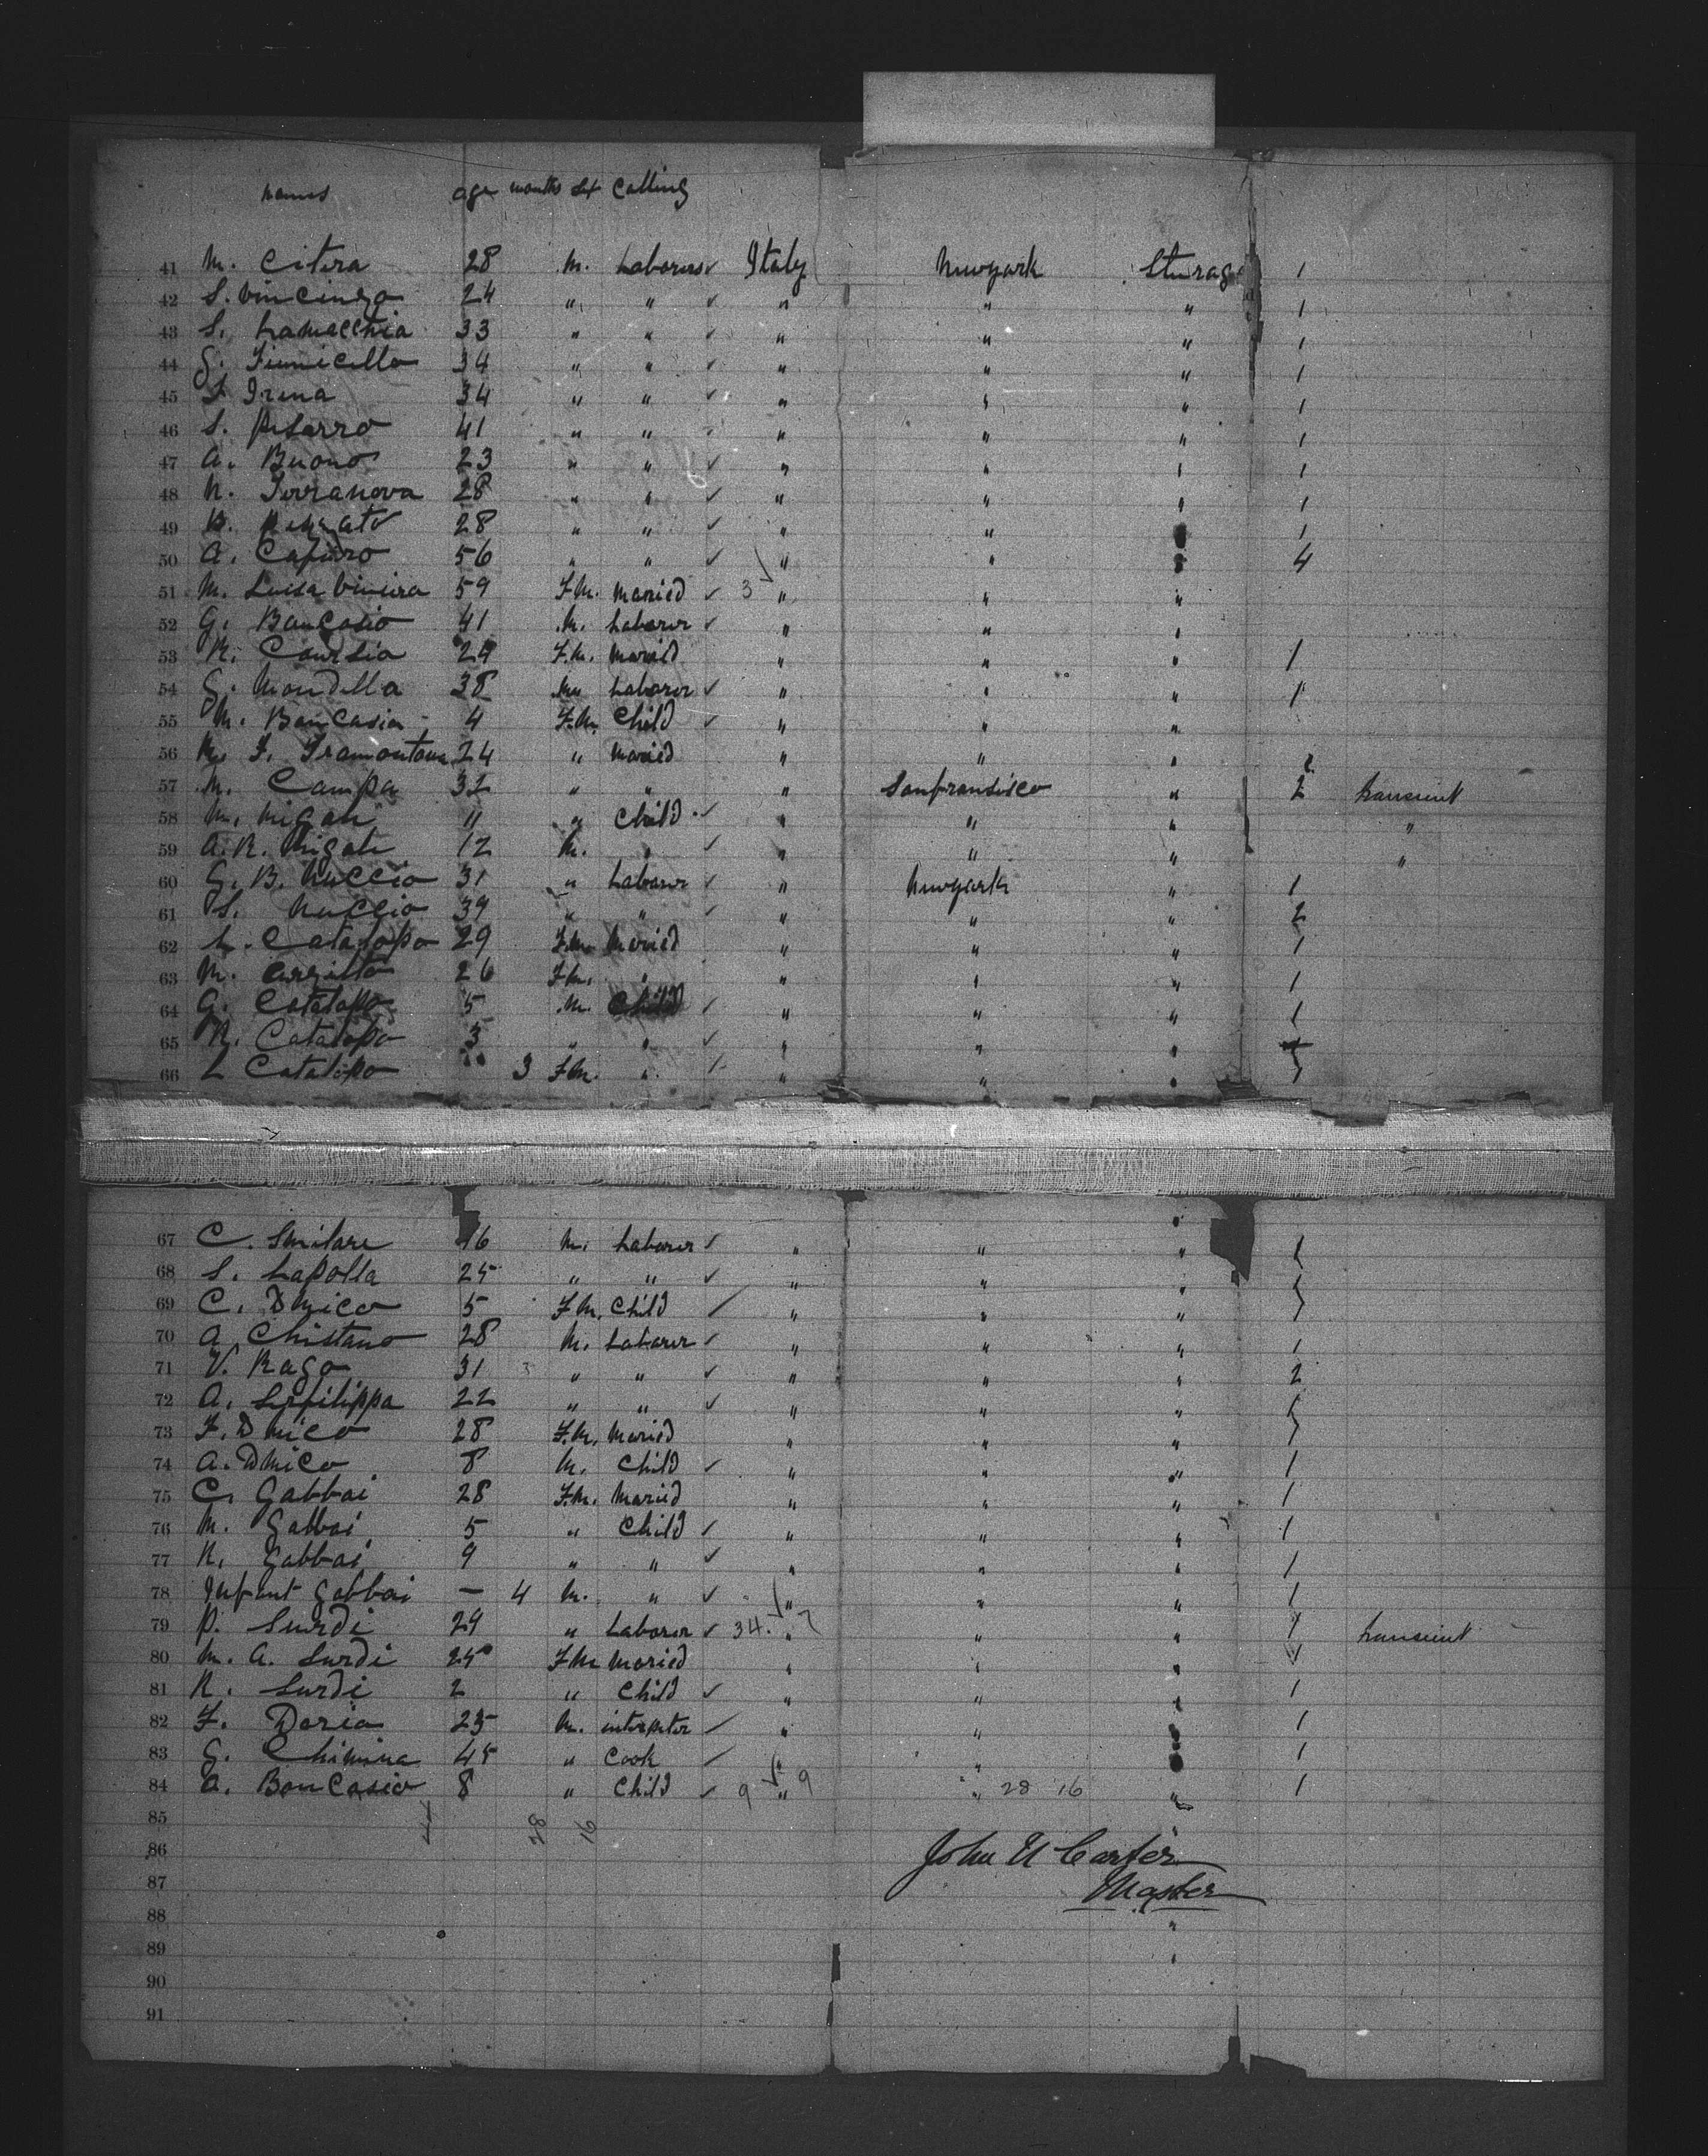 names age months sex Calling
41 M. Citera 28 M. Laborers ✓ Italy Newyork Sturage 1
42 S. Vincinzo 24 " " ✓ " " " 1
43 S. Lamacchia 33 " " ✓ " " " 1
44 G. Fiumicello 34 " " ✓ " " " 1
45 Irena 34 " " ✓ " " " 1
46 S. Pisarro 41 " " ✓ " " " 1
47 A. Buono 23 " " ✓ " " " 1
48 N. Terranova 28 " " ✓ " " " 1
49 28 " " ✓ " " " 1
50 A. Capurro 56 " " ✓ " " " 4
51 M. Luisa 59 F.M. Maried ✓ 3 " " "
52 G. Bancasio 41 M. Laborer ✓ " " "
53 R. 29 F.M. Maried " " " 1
54 G. Mondella 38 M Laborer ✓ " " " 1
55 M. Bancasia 4 F.M. Child ✓ " " "
56 F. Tramontana 24 " Maried " " " 2
57 M. Campa 32 " " " Sanfransisco " 2 transient
58 M. Migali 11 " Child ✓ " " " "
59 A. R. Migali 12 M. " ✓ " " " "
60 G. B. Nuccio 31 " Laborer ✓ " Newyork " 1
61 S. Nuccio 39 " " ✓ " " " 2
62 L. Catalopo 29 F.M. Maried " " " 1
63 M. 26 F.M. " " " " 1
64 G. Catalopo 5 M. Child ✓ " " " 1
65 R. Catalopo 3 " " ✓ " " "
66 L Catalopo " 3 F.M. " ✓ " " "
67 C. Smilare 16 M. Laborer ✓ " " "
68 S. Lapolla 25 " " ✓ " " "
69 C. DMico 5 F.M. Child ✓ " " "
70 A. Chistano 28 M. Laborer ✓ " " " 1
71 V. Rago 31 3 " " ✓ " " " 2
72 A. Serfilippa 22 " " ✓ " " "
73 F. DMico 28 F.M. Maried " " "
74 A. DMico 8 M. Child ✓ " " " 1
75 C. Gabbai 28 F.M. Maried " " " 1
76 M. Gabbai 5 " Child ✓ " " " 1
77 R. Gabbai 9 " " ✓ " " " 1
78 Infant Gabbai — 4 M. " ✓ " " " 1
79 P. Surdi 29 " Laborer ✓ 34. " 7 " " 1 transient
80 M. A. Surdi 25 F.M Maried " " "
81 R. Surdi 2 " Child ✓ " " " 1
82 F. Doria 25 M. interpter ✓ " " " 1
83 G. Chimina 45 " Cook ✓ " " " 1
84 A. Bon Casio 8 " Child ✓ 9 " 9 " 28 16 " 1
85 44 28 16
86 John N Carter
87 Master
88 "
89 "
90
91